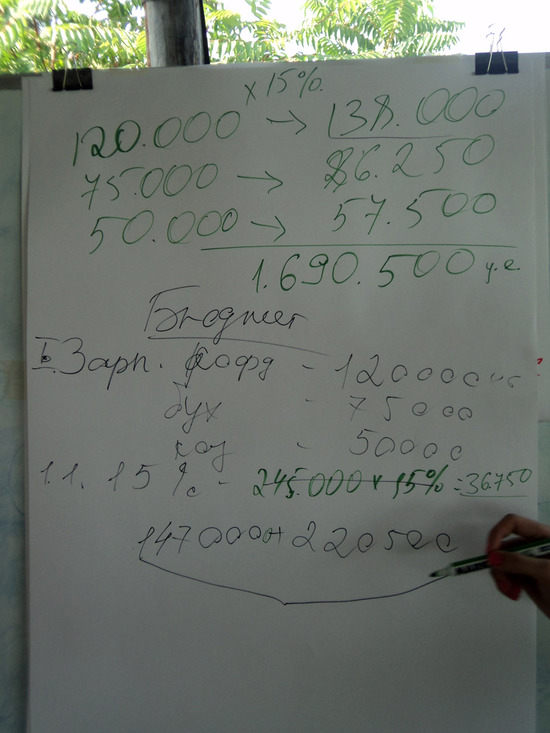 x 15%.
120.000 → 138.000
75.000 → 86.250
50.000 → 57.500
1.690.500 у.е.
Бюджет
I. Зарп. коорд - 120000
бух - 75000
- 50000
1.1. 15% - 245.000 x 15% = 36750
147 0000 + 220500